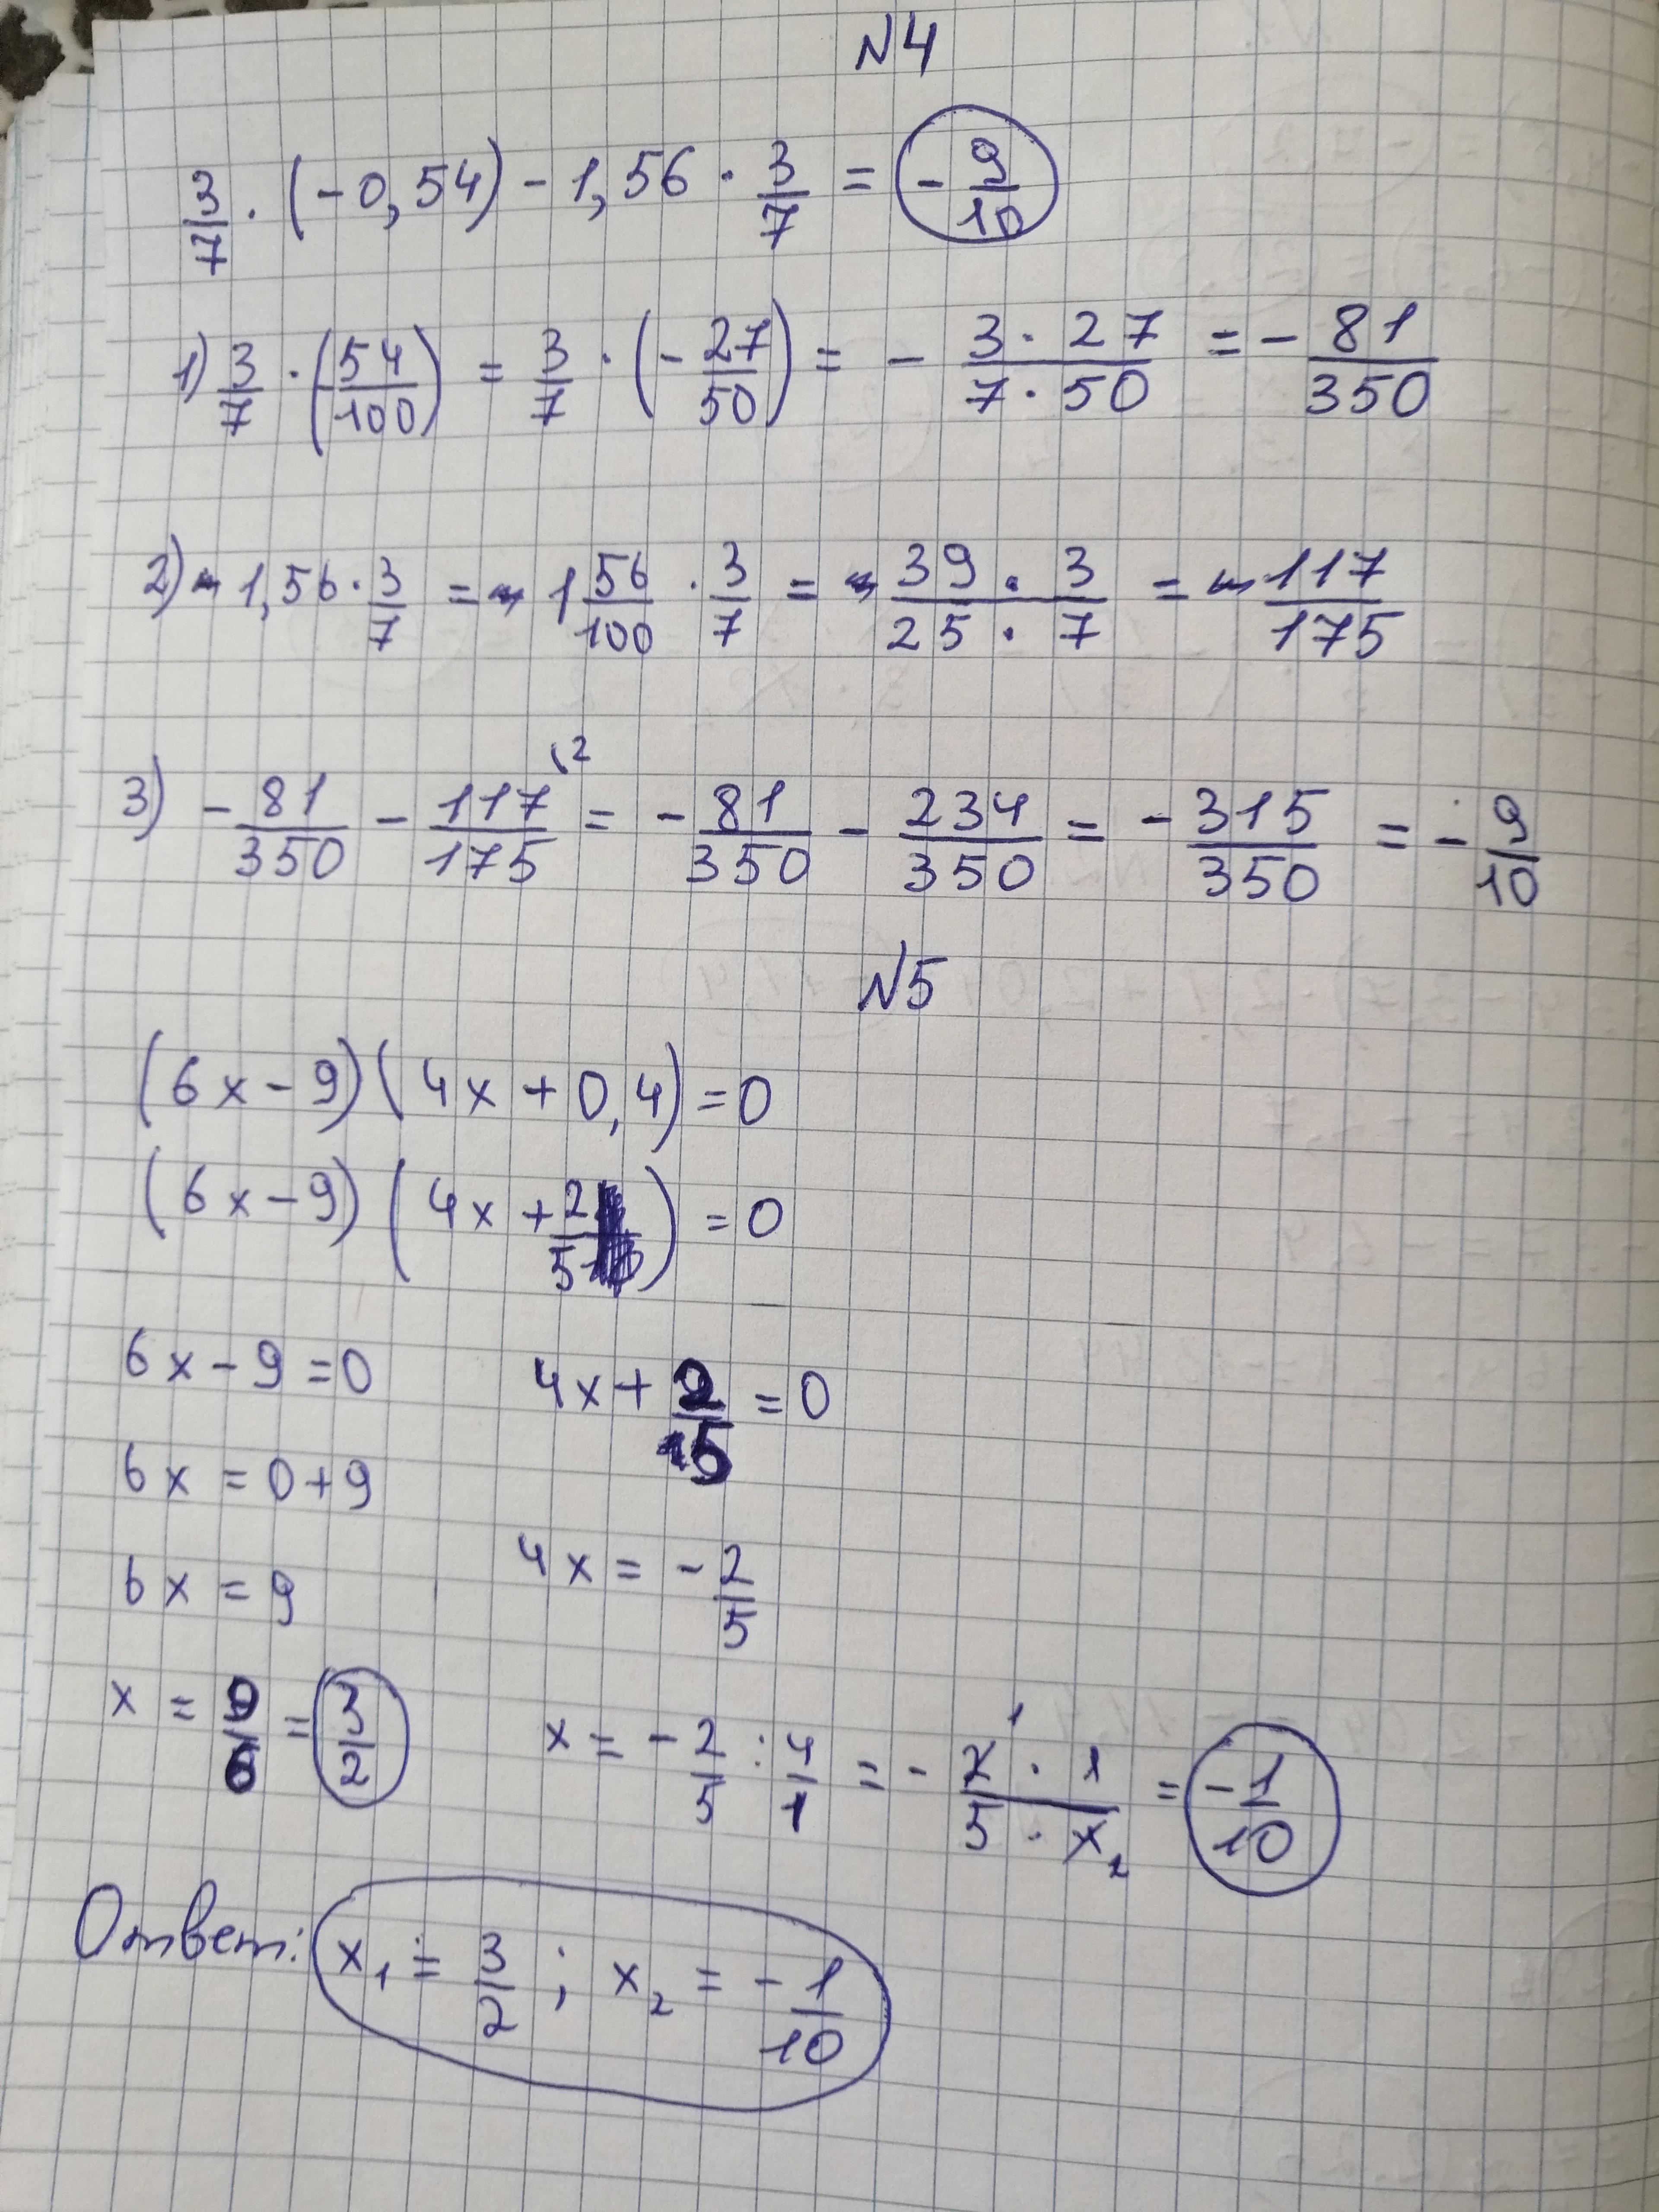 N4
3/7 · (-0,54) - 1,56 · 3/7 = -9/10
1) 3/7 · (-54/100) = 3/7 · (-27/50) = - 3·27/7·50 = - 81/350
2) - 1,56 · 3/7 = - 1 56/100 · 3/7 = - 39·3/25·7 = - 117/175
3) - 81/350 - 117/175 \2 = - 81/350 - 234/350 = - 315/350 = - 9/10
N5
(6x-9)(4x+0,4)=0
(6x-9)(4x+2/5)=0
6x-9=0 4x+2/5=0
6x=0+9
4x=-2/5
6x=9
x=9/6=3/2 x=-2/5:4/1=- 2 1·1/5·4 2 = -1/10
Ответ: x₁=3/2; x₂=-1/10